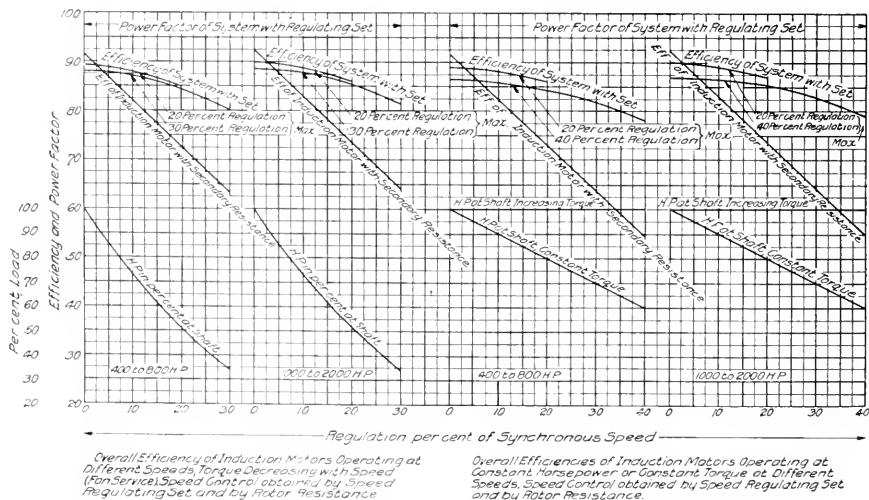 Power Factor of System with Regulating Set
Power Factor of System with Regulating Set
Efficiency of System with Set
Eff of Induction Motor with Secondary Resistance
20 Percent Regulation
30 Percent Regulation
Max
H.P. in percent at shaft
400 to 800 H.P.
Efficiency of System with Set
Eff of Induction Motor with Secondary Resistance
20 Percent Regulation
30 Percent Regulation
Max
H.P. in percent at shaft
to 2000 H.P.
Efficiency of System with Set
Eff of Induction Motor with Secondary Resistance
20 Percent Regulation
40 Percent Regulation
Max
H.P. at Shaft Increasing Torque
H.P. at Shaft Constant Torque
400 to 800 H.P.
Efficiency of System with Set
Eff of Induction Motor with Secondary Resistance
20 Percent Regulation
40 Percent Regulation
Max
H.P. at Shaft Increasing Torque
H.P. at Shaft Constant Torque
1000 to 2000 H.P.
Percent Load
100 90 80 70 60 50 40 30 20
Efficiency and Power Factor
100 90 80 70 60 50 40 30 20
0 10 20 30 0 10 20 30 0 10 20 30 40 0 10 20 30 40
Regulation percent of Synchronous Speed
Overall Efficiency of Induction Motors Operating at
Different Speeds, Torque Decreasing with Speed
(Fan Service). Speed Control obtained by Speed
Regulating Set and by Rotor Resistance
Overall Efficiencies of Induction Motors Operating at
Constant Horsepower or Constant Torque at Different
Speeds. Speed Control obtained by Speed Regulating Set
and by Rotor Resistance.